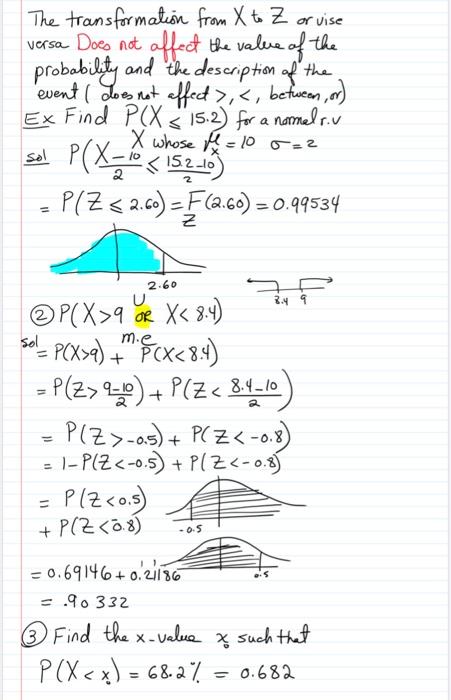 The transformation from X to Z or vise
versa Does not affect the value of the
probability and the description of the
event ( does not effect >, <, between, or)
Ex Find P(X ≤ 15.2) for a normal r.v
X whose μₓ = 10 σ = 2
sol P(X-10/2 ≤ 15.2-10/2)
= P(Z ≤ 2.60) = F_Z(2.60) = 0.99534
2.60
8.4 9
U
② P(X>9 OR X< 8.4)
m.e
sol = P(X>9) + P(X<8.4)
= P(Z> 9-10/2) + P(Z < 8.4-10/2)
= P(Z>-0.5) + P(Z<-0.8)
= 1-P(Z<-0.5) + P(Z<-0.8)
= P(Z<0.5)
+ P(Z<-0.8)
-0.5
0.5
= 0.69146 + 0.21186
= .90332
③ Find the x-value x₀ such that
P(X < x₀) = 68.2% = 0.682